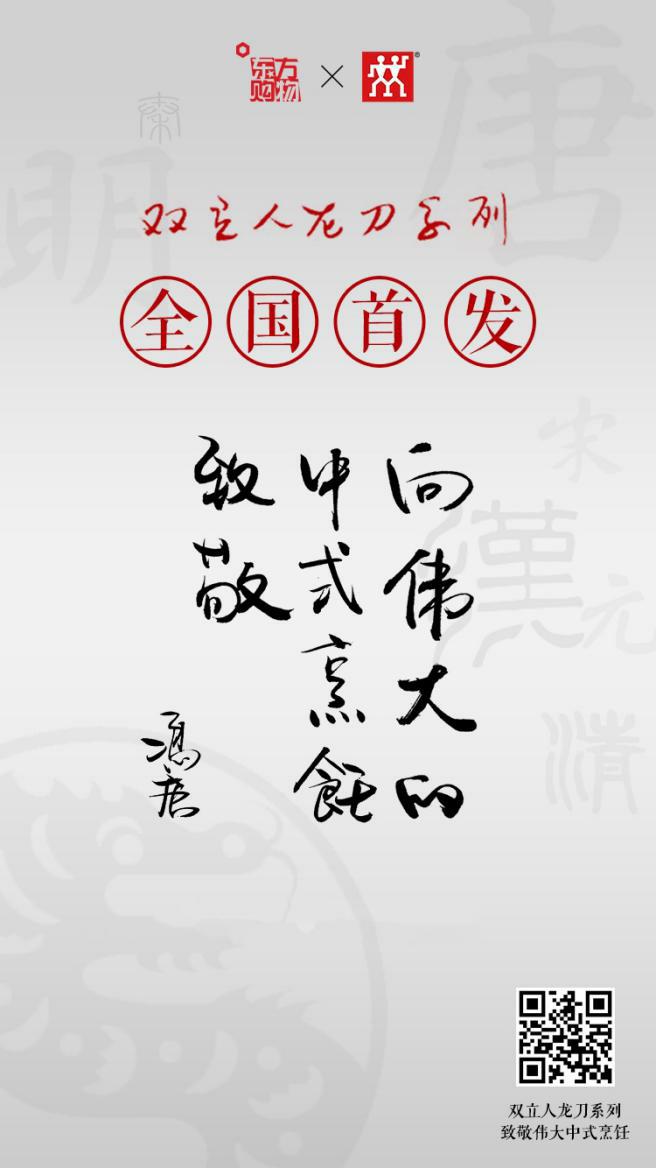 东方购物
×
双立人龙刀系列
全国首发
向伟大的
中式烹飪
致敬
馮唐
秦
明
唐
宋
漢
元
清
双立人龙刀系列
致敬伟大中式烹饪